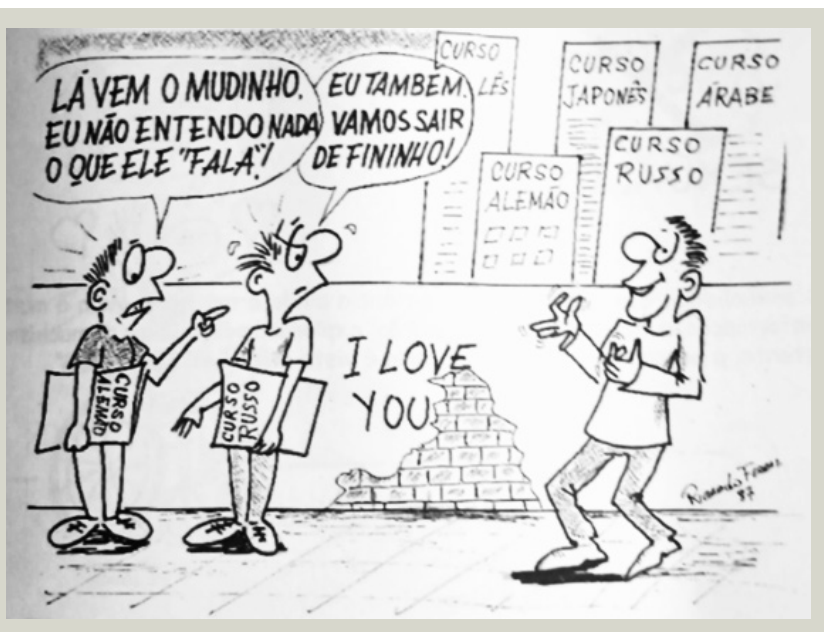 LÁ VEM O MUDINHO.
EU NÃO ENTENDO NADA
O QUE ELE "FALA"!
EU TAMBEM.
VAMOS SAIR
DE FININHO!
CURSO
LÊS
CURSO
JAPONÊS
CURSO
ÁRABE
CURSO
ALEMÃO
CURSO
RUSSO
CURSO
ALEMÃO
CURSO
RUSSO
I LOVE
YOU
87